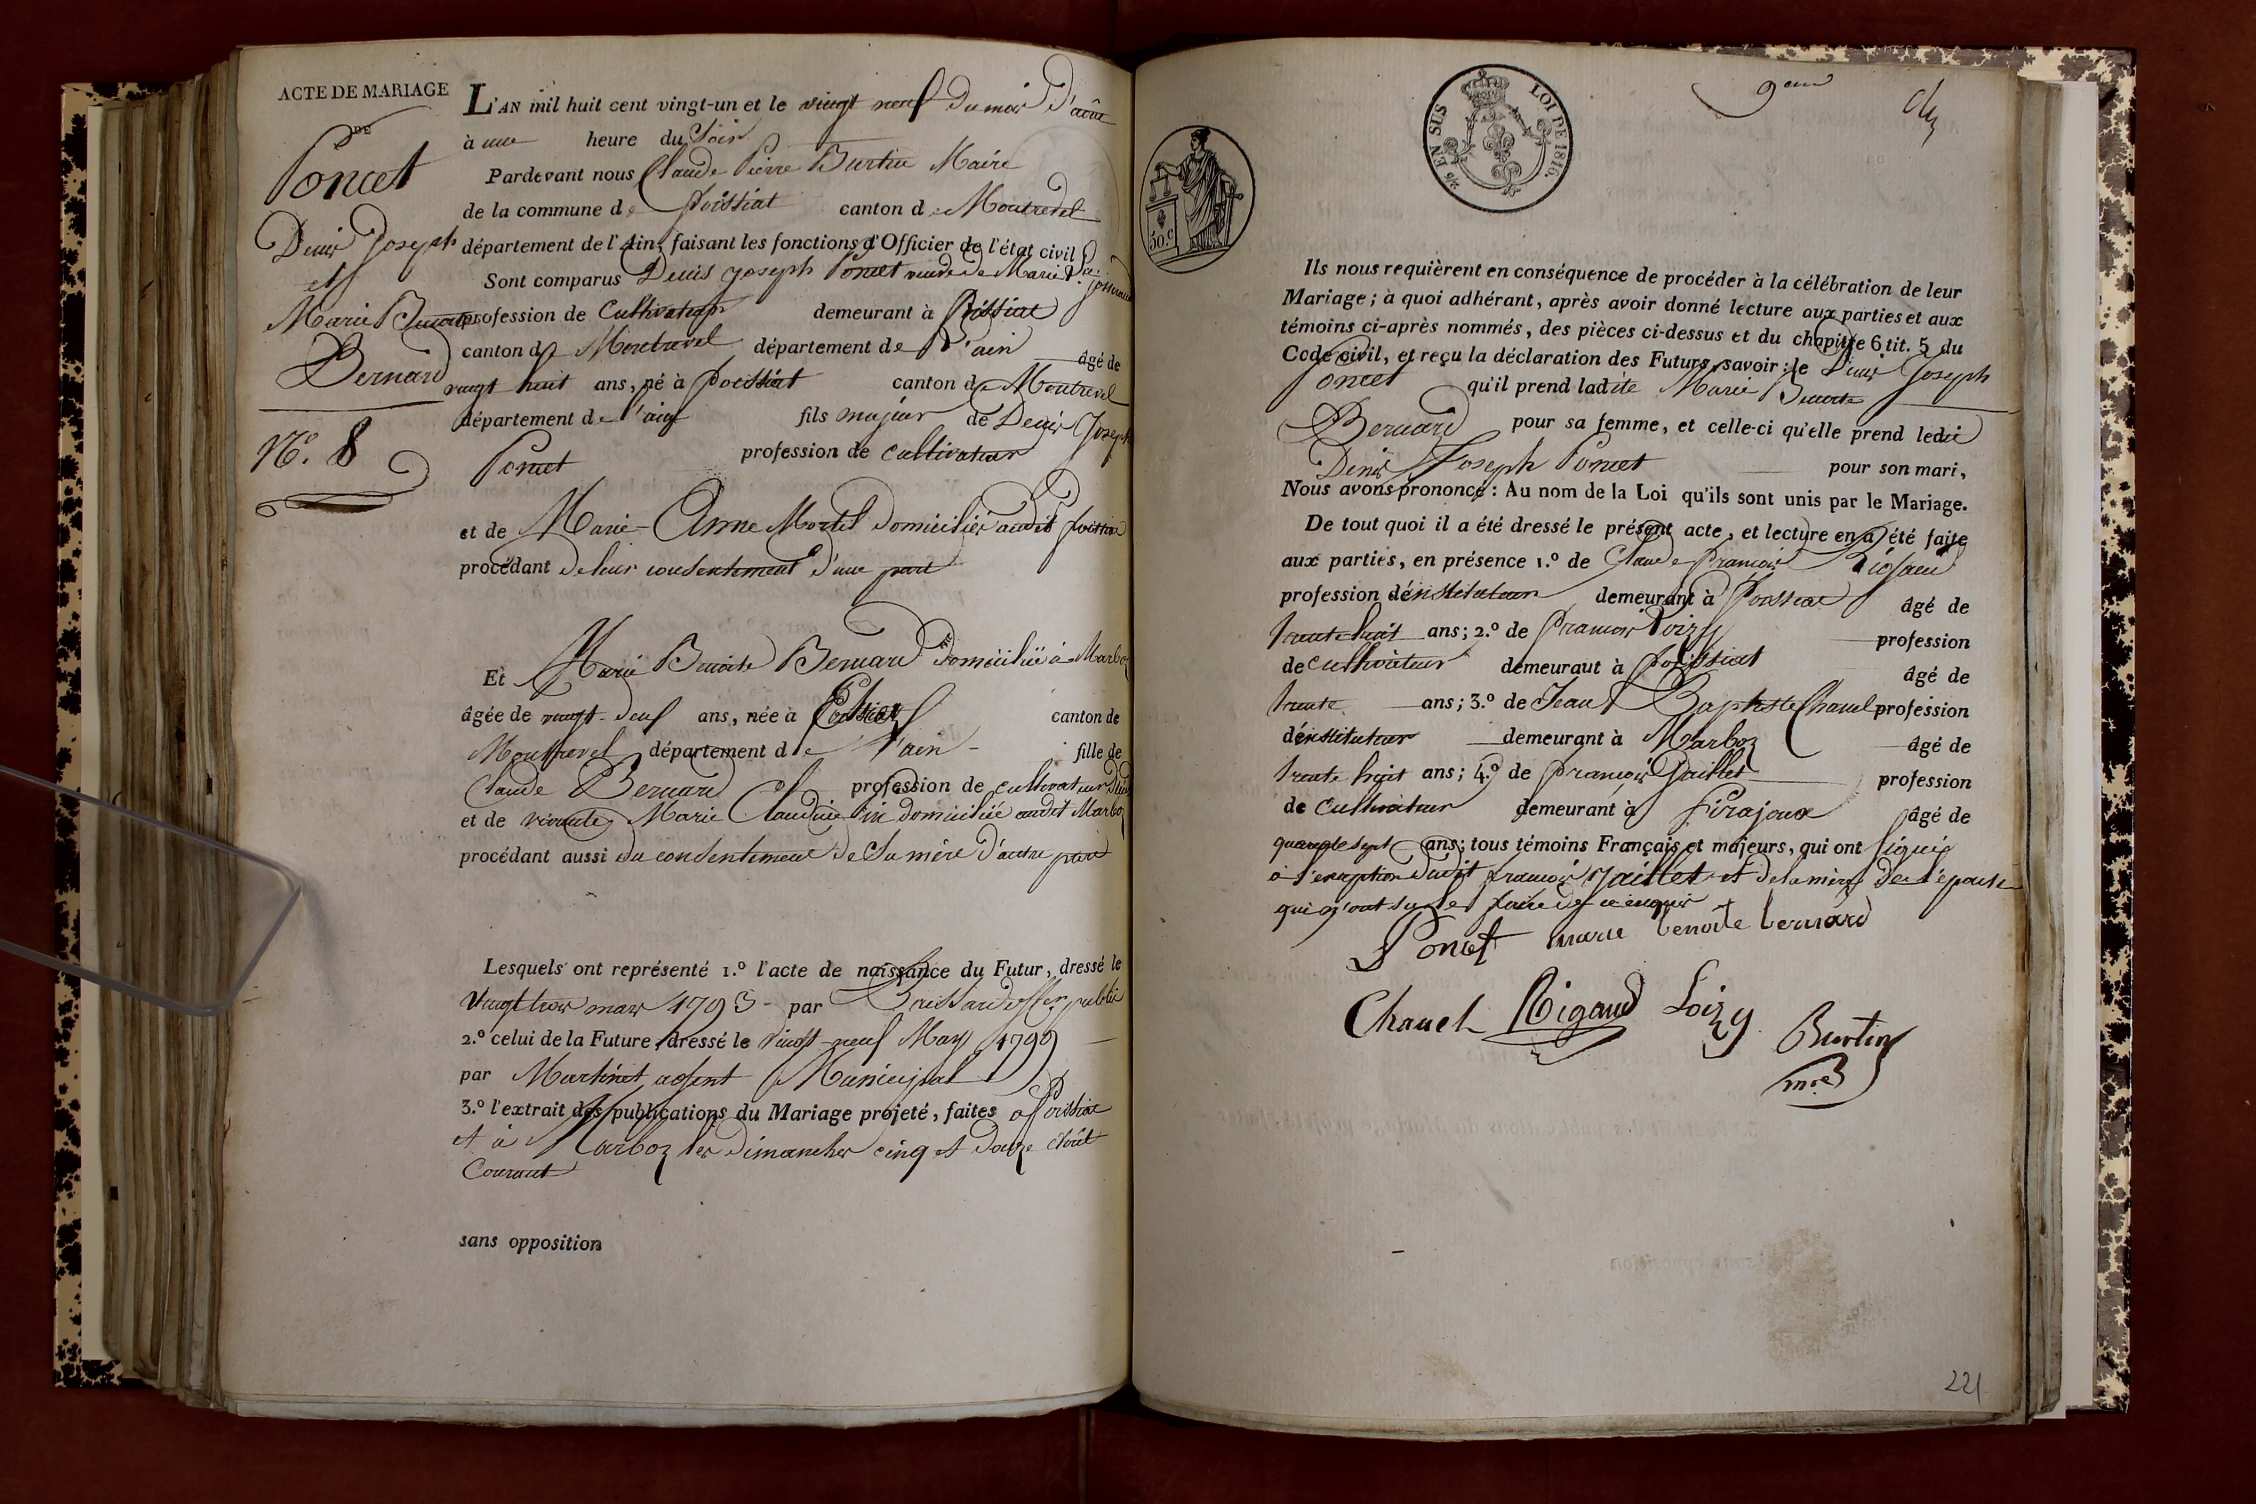 ACTE DE MARIAGE
DE
Poncet
Denis Joseph
et
Marie Benoite
Bernard
N.º 8
L'AN mil huit cent vingt-un et le vingt neuf du mois d'août
à une heure du Soir
Pardevant nous Claude Pierre Burtin Maire
de la commune de foissiat canton de Montrevel
département de l'Ain, faisant les fonctions d'Officier de l'état civil
Sont comparus Denis joseph Poncet veuf de Marie
profession de Cultivateur demeurant à foissiat
canton de Montrevel département de l'ain âgé de
vingt huit ans, né à foissiat canton de Montrevel
département de l'ain fils majeur de Denis Joseph
Poncet profession de cultivateur
et de Marie-Anne Mortel domiciliés audit foissiat
procédant de leur consentement d'une part
Et Marie Benoite Bernard domiciliée à Marboz
âgée de vingt-deux ans, née à canton de
Montrevel département de l'ain - fille de
Claude Bernard profession de cultivateur
et de vivante Marie Claudine Pin domiciliée audit Marboz
procédant aussi du consentement de Sa mère d'autre part
Lesquels ont représenté 1.º l'acte de naissance du Futur, dressé le
Vingt trois mars 1793 - par offer. public
2.º celui de la Future, dressé le Vingt-neuf May 1799
par Martinet agent Municipal
3.º l'extrait des publications du Mariage projeté, faites à foissiat
et à Marboz les dimanches cinq et douze Août
Courant
sans opposition
EN SUS LOI DE 1816.
50.c
Ils nous requièrent en conséquence de procéder à la célébration de leur
Mariage; à quoi adhérant, après avoir donné lecture aux parties et aux
témoins ci-après nommés, des pièces ci-dessus et du chapitre 6 tit. 5 du
Code civil, et reçu la déclaration des Futurs, savoir: le Denis Joseph
Poncet qu'il prend ladite Marie Benoite
Bernard pour sa femme, et celle-ci qu'elle prend ledit
Denis Joseph Poncet pour son mari,
Nous avons prononcé: Au nom de la Loi qu'ils sont unis par le Mariage.
De tout quoi il a été dressé le présent acte, et lecture en a été faite
aux parties, en présence 1.º de Claude françois Rigaud
profession d'énstituteur demeurant à foissiat âgé de
trente huit ans; 2.º de françois Loizy profession
de cultivateur demeurant à foissiat âgé de
trente ans; 3.º de Jean Baptiste Chanel profession
d'énstituteur demeurant à Marboz âgé de
trente huit ans; 4.º de françois Jaillet profession
de cultivateur demeurant à Pirajoux âgé de
quarante sept ans; tous témoins Français et majeurs, qui ont Signé
à l'exception dudit françois Jaillet et de la mère de l'épouse
qui n'ont su le faire de ce enquis
Poncet marie benoite bernard
Chanel Rigaud Loizy Burtin
m.re
221